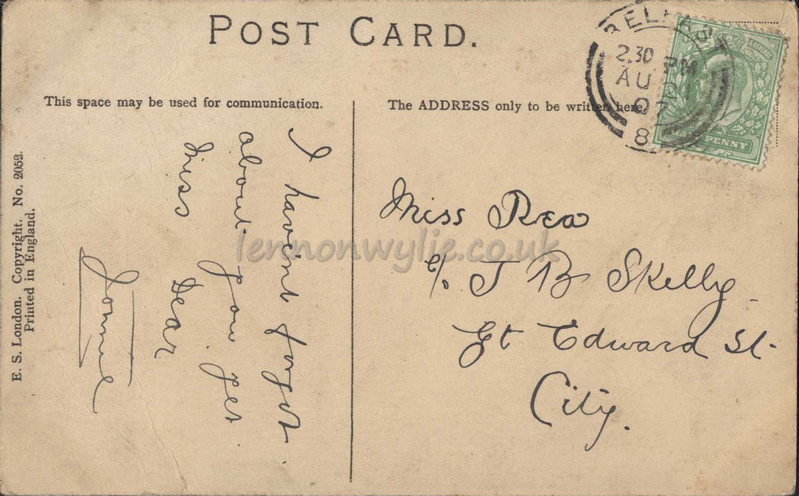 POST CARD.
This space may be used for communication.
The ADDRESS only to be written here.
BELFAST
2.30 PM
AU
07
8
PENNY
E. S. London. Copyright. No. 2052.
Printed in England.
I havent forgot
about you yet
Miss Dear
Miss Rea
c/o J B Skelly
Gt Edward St.
City.
lennonwylie.co.uk